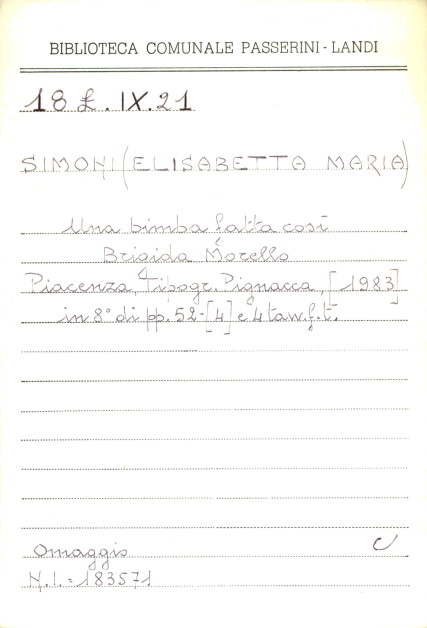 BIBLIOTECA COMUNALE PASSERINI-LANDI
18 £. IX. 21
SIMONI (ELISABETTA MARIA)
Una bimba fatta così
Brigida Morello
Piacenza, Tipogr. Pignacca, [1983]
in 8° di pp. 52-[4] e 4 tav. f. t.
Omaggio
C
N.I. = 183571